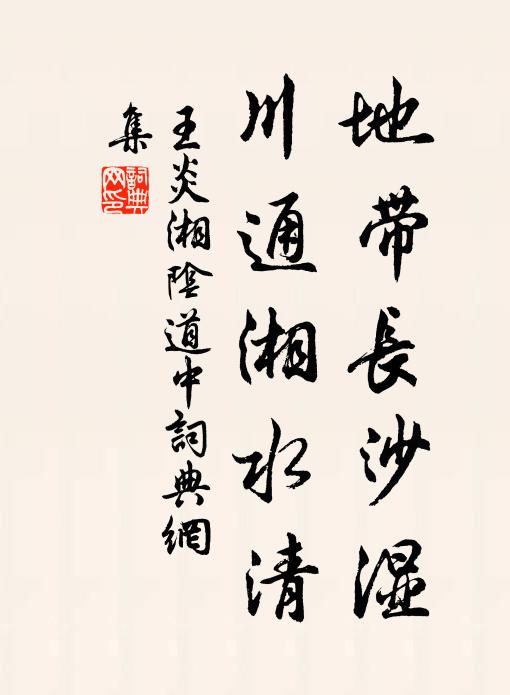 地帶長沙濕
川通湘水清
王炎湘陰道中詞典網
集
詞典
网印